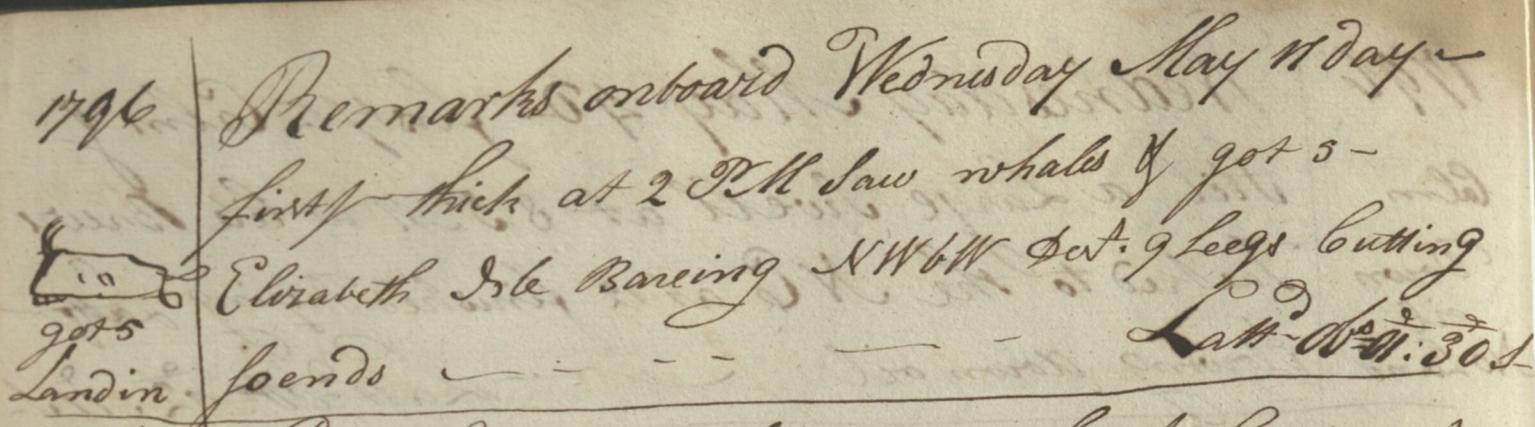 1796
Remarks onboard Wednesday May 11 day
first thick at 2 PM Saw whales & got 5
Elizabeth Isle Bareing NWbW Dest: 9 Leegs Cutting
got 5
Landin
So ends
Lattd Obs 30 S